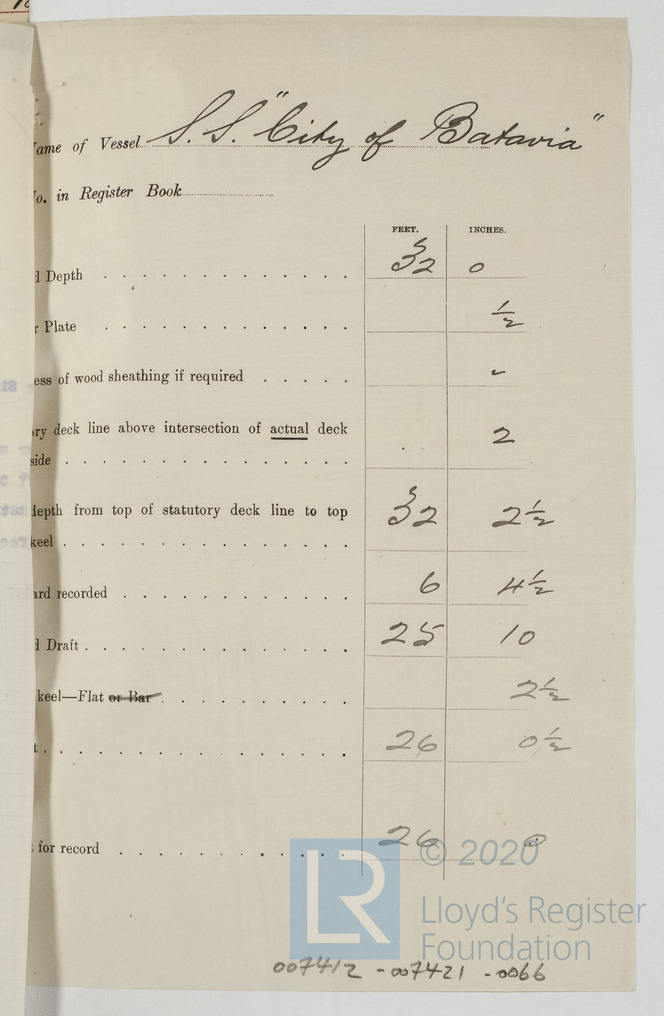 ame of Vessel S.S. "City of Batavia"
o. in Register Book
FEET. INCHES.
d Depth 32 0
r Plate ½
ess of wood sheathing if required -
ry deck line above intersection of actual deck
side 2
depth from top of statutory deck line to top
keel 32 2½
ard recorded 6 4½
d Draft 25 10
keel—Flat or Bar 2½
t 26 0½
for record 26 0
LR © 2020
Lloyd's Register
Foundation
007412 - 007421 - 0066